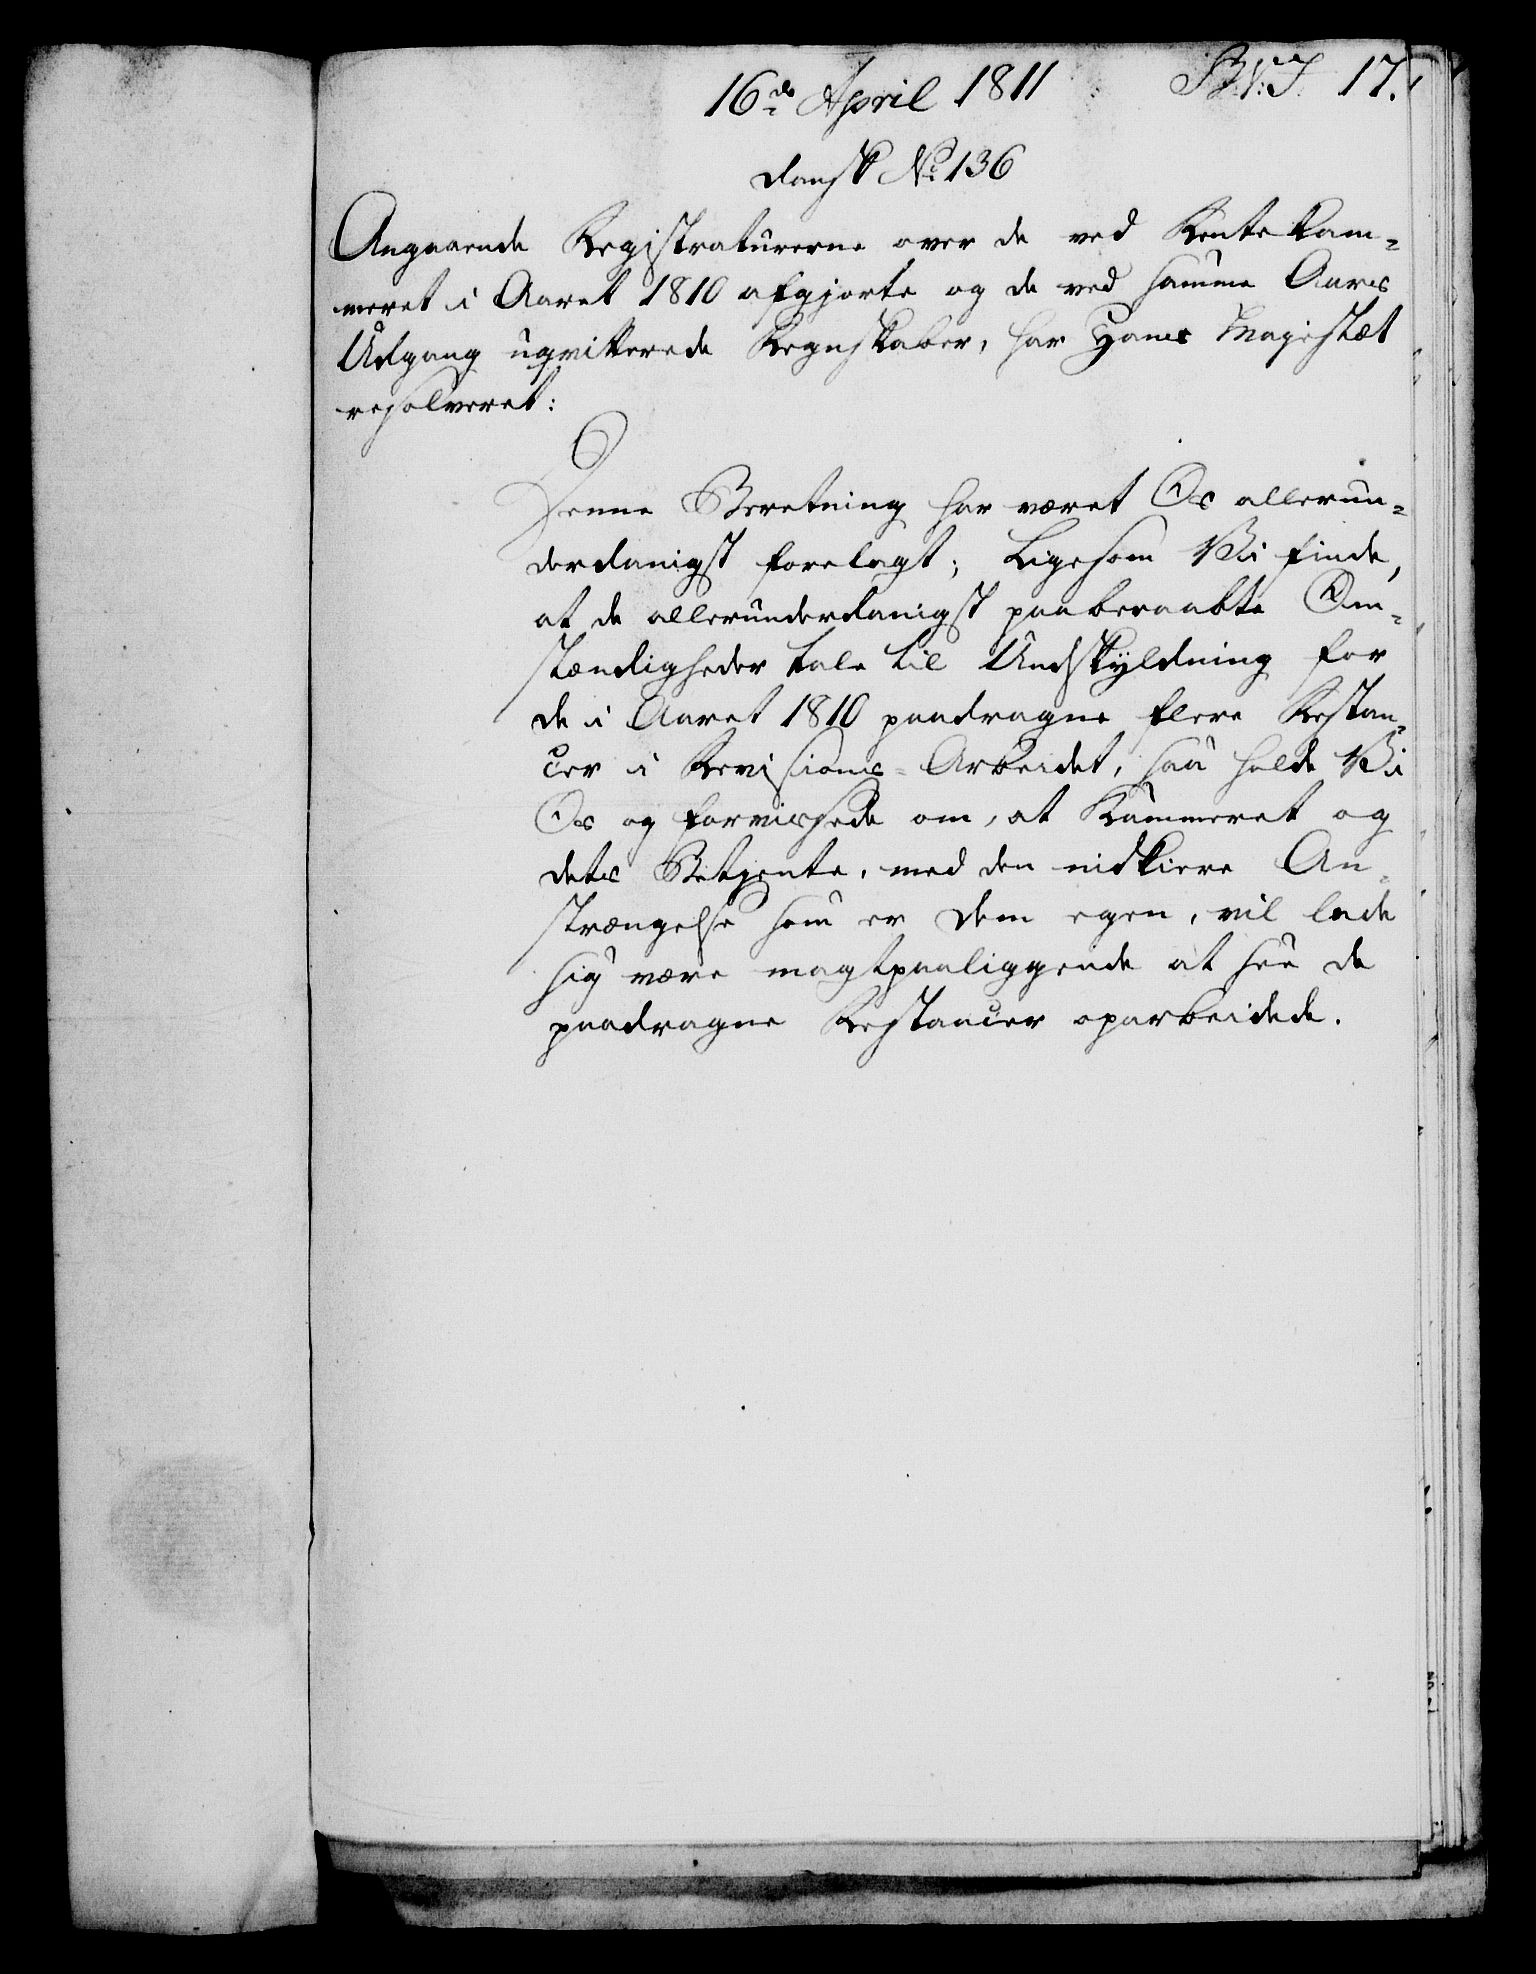 16de April 1811
17.
dansk No 136
Angaaende Registraturerne over de ved Rentekam-
meret i Aaret 1810 afgjorte og de ved samme Aars
Udgang uqvitterede Regnskaber, har Hans Majestæt
resolveret:
Denne Beretning har været Os allerun-
derdanigst forelagt; Ligesom Vi finde,
at de allerunderdanigst paaberaabte Om-
stændigheder tale til Undskyldning for
de i Aaret 1810 paadragne flere Restan-
cer i Revisions-Arbeidet, saa holde Vi
Os og forvissede om, at Kammeret og
dets Betjente, med den nidkiere An-
strængelse som er dem egen, vil lade
sig være magtpaaliggende at see de
paadragne Restancer oparbeidede.